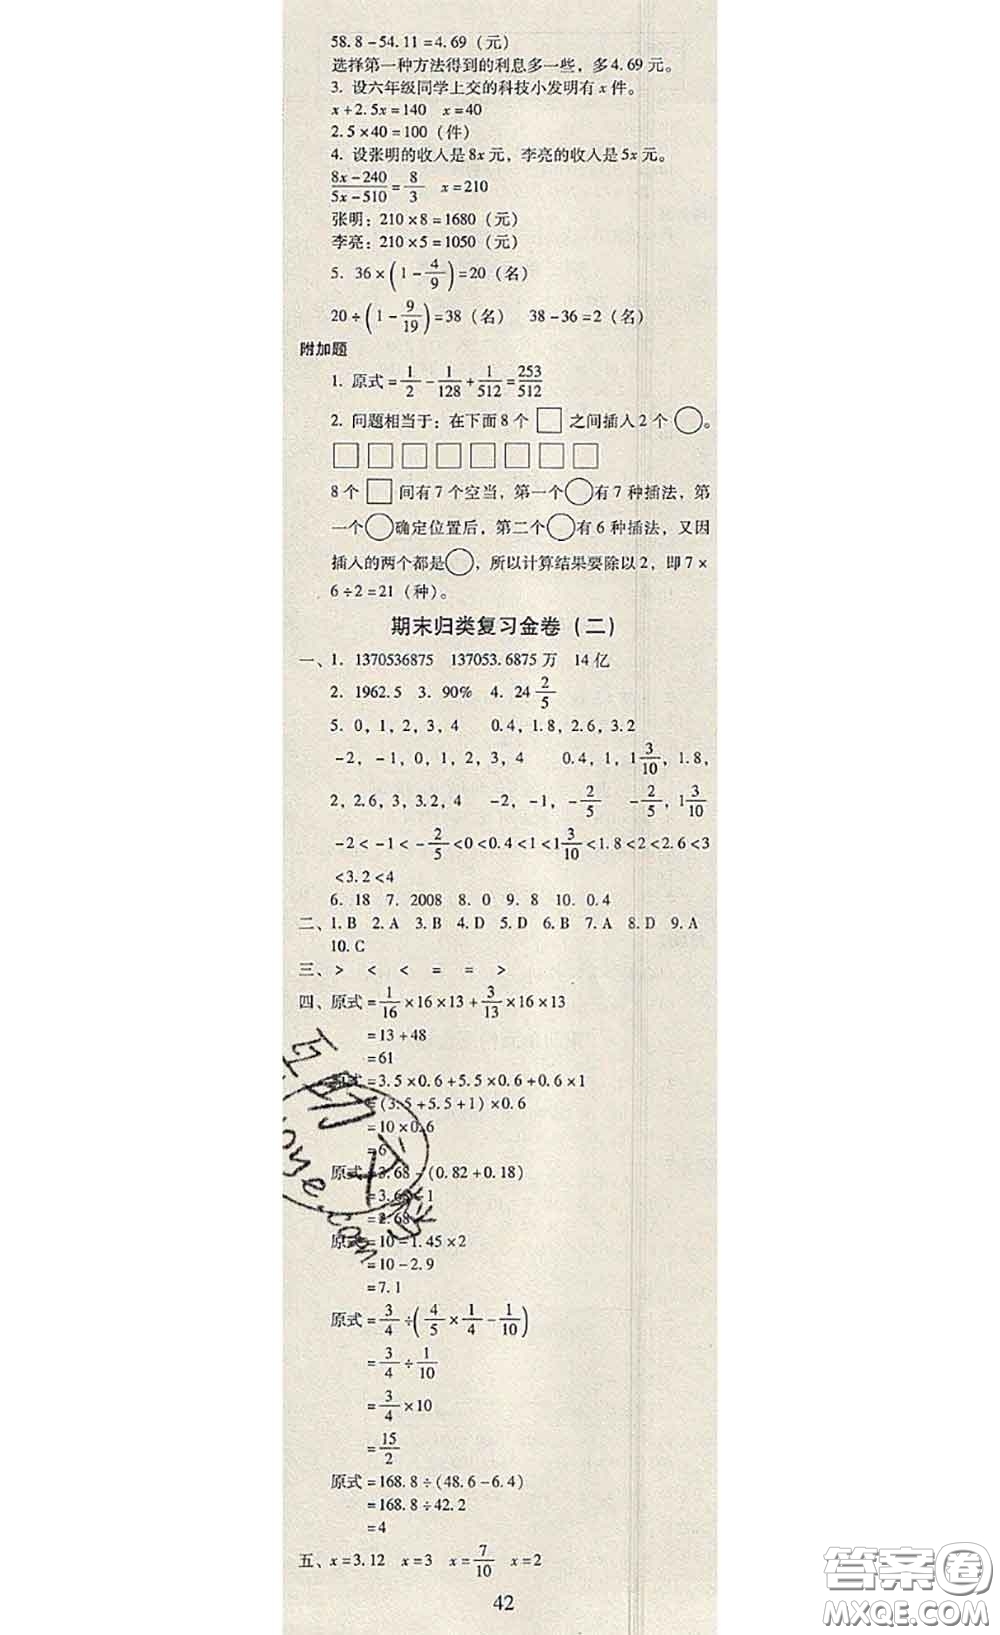 58.8-54.11=4.69(元)
选择第一种方法得到的利息多一些，多4.69元。
3. 设六年级同学上交的科技小发明有x件。
x+2.5x=140 x=40
2.5×40=100(件)
4. 设张明的收入是8x元，李亮的收入是5x元。
(8x-240)/(5x-510)=8/3 x=210
张明：210×8=1680(元)
李亮：210×5=1050(元)
5. 36×(1-4/9)=20(名)
20÷(1-9/19)=38(名) 38-36=2(名)
附加题
1. 原式=1/2-1/128+1/512=253/512
2. 问题相当于：在下面8个□之间插入2个○。
□ □ □ □ □ □ □ □
8个□间有7个空当，第一个○有7种插法，第
一个○确定位置后，第二个○有6种插法，又因
插入的两个都是○，所以计算结果要除以2，即7×
6÷2=21(种)。
期末归类复习金卷(二)
一、1. 1370536875 137053.6875万 14亿
2. 1962.5 3. 90% 4. 24 2/5
5. 0，1，2，3，4 0.4，1.8，2.6，3.2
-2，-1，0，1，2，3，4 0.4，1，1 3/10，1.8，
2，2.6，3，3.2，4 -2，-1，-2/5 -2/5，1 3/10
-2<-1<-2/5<0<0.4<1<1 3/10<1.8<2<2.6<3
<3.2<4
6. 18 7. 2008 8. 0 9. 8 10. 0.4
二、1.B 2.A 3.B 4.D 5.D 6.B 7.A 8.D 9.A
10.C
三、> < < = = >
四、原式=1/16×16×13+3/13×16×13
=13+48
=61
=3.5×0.6+5.5×0.6+0.6×1
=(3.5+5.5+1)×0.6
=10×0.6
=6
原式=3.68-(0.82+0.18)
=3.68-1
=2.68
原式=10-1.45×2
=10-2.9
=7.1
原式=3/4÷(4/5×1/4-1/10)
=3/4÷1/10
=3/4×10
=15/2
原式=168.8÷(48.6-6.4)
=168.8÷42.2
=4
五、x=3.12 x=3 x=7/10 x=2
42
答案圈
MXQE.COM